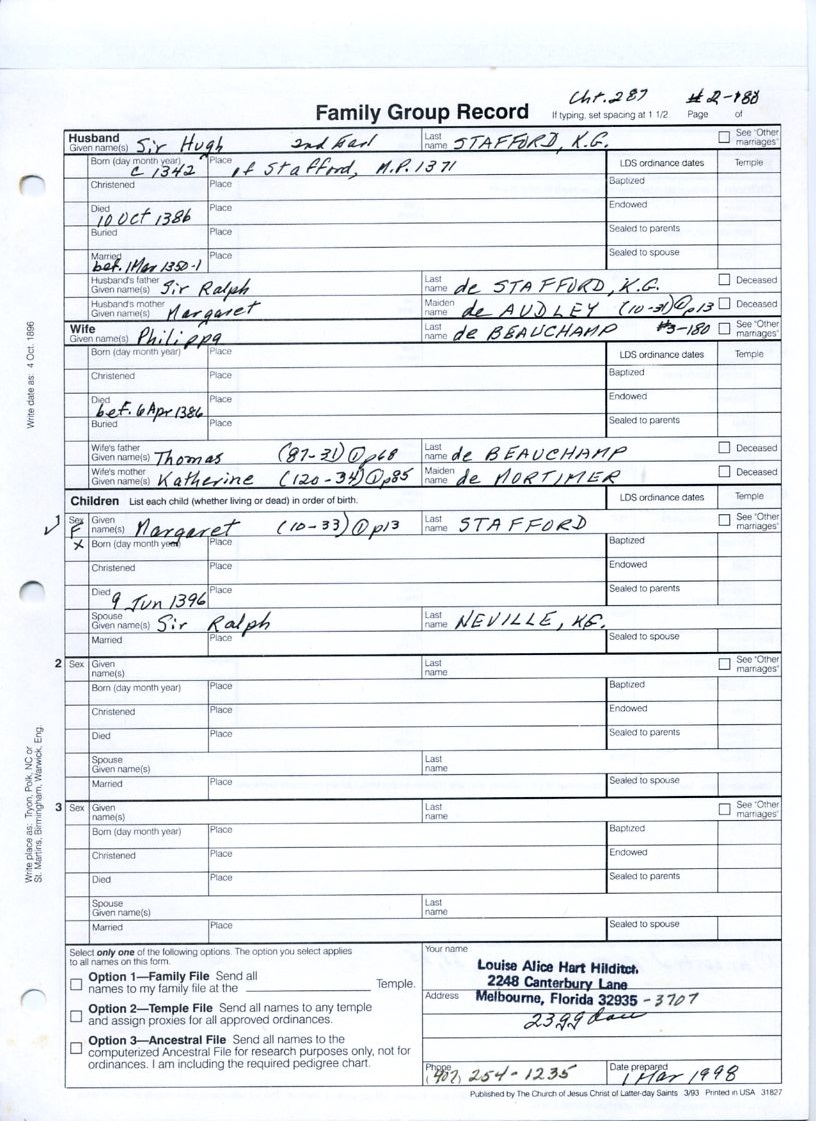 Cht. 287 #2-180
Family Group Record If typing, set spacing at 1 1/2. Page of
Husband
Given name(s) Sir Hugh 2nd Earl Last name STAFFORD, K.G. See "Other marriages"
Born (day month year) c 1342 Place of Stafford, M.P. 1371 LDS ordinance dates Temple
Christened Place Baptized
Died 10 Oct 1386 Place Endowed
Buried Place Sealed to parents
Married bet. 1 Mar 1350-1 Place Sealed to spouse
Husband's father Given name(s) Sir Ralph Last name de STAFFORD, K.G. Deceased
Husband's mother Given name(s) Margaret Maiden name de AUDLEY (10-31) ① p13 Deceased
Wife
Given name(s) Philippa Last name de BEAUCHAMP #3-180 See "Other marriages"
Born (day month year) Place LDS ordinance dates Temple
Christened Place Baptized
Died bef. 6 Apr 1386 Place Endowed
Buried Place Sealed to parents
Wife's father Given name(s) Thomas (87-31) ① p68 Last name de BEAUCHAMP Deceased
Wife's mother Given name(s) Katherine (120-34) ① p85 Maiden name de MORTIMER Deceased
Children List each child (whether living or dead) in order of birth. LDS ordinance dates Temple
1 Sex F Given name(s) Margaret (10-33) ① p13 Last name STAFFORD See "Other marriages"
X Born (day month year) Place Baptized
Christened Place Endowed
Died 9 Jun 1396 Place Sealed to parents
Spouse Given name(s) Sir Ralph Last name NEVILLE, KG.
Married Place Sealed to spouse
2 Sex Given name(s) Last name See "Other marriages"
Born (day month year) Place Baptized
Christened Place Endowed
Died Place Sealed to parents
Spouse Given name(s) Last name
Married Place Sealed to spouse
3 Sex Given name(s) Last name See "Other marriages"
Born (day month year) Place Baptized
Christened Place Endowed
Died Place Sealed to parents
Spouse Given name(s) Last name
Married Place Sealed to spouse
Write date as: 4 Oct. 1896
Write place as: Tryon, Polk, NC or
St. Martins, Birmingham, Warwick, Eng.
Select only one of the following options. The option you select applies
to all names on this form.
Option 1–Family File Send all
names to my family file at the Temple.
Option 2–Temple File Send all names to any temple
and assign proxies for all approved ordinances.
Option 3–Ancestral File Send all names to the
computerized Ancestral File for research purposes only, not for
ordinances. I am including the required pedigree chart.
Your name
Louise Alice Hart Hilditch
2248 Canterbury Lane
Address Melbourne, Florida 32935 - 3707
Phone (407) 254-1235 Date prepared 1 Mar 1998
Published by The Church of Jesus Christ of Latter-day Saints 3/93 Printed in USA 31827